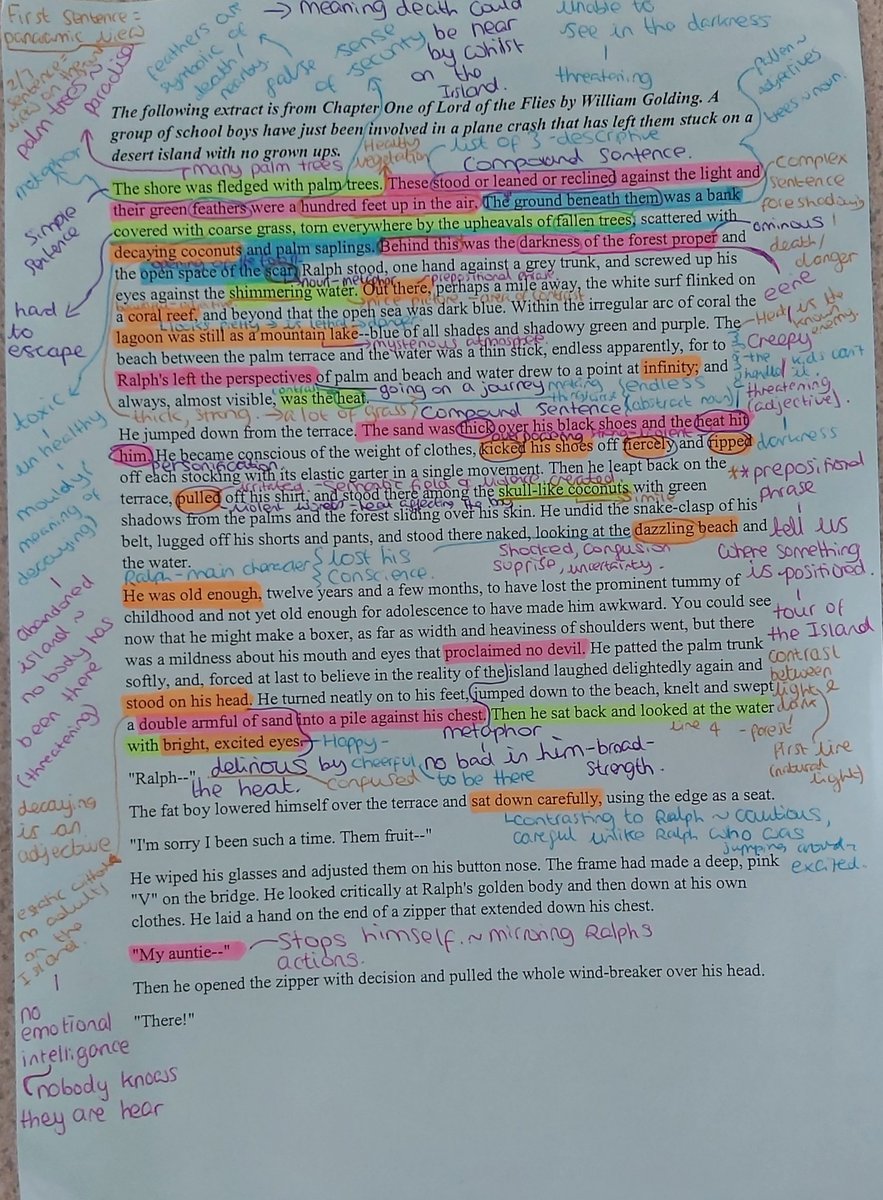 First Sentence =
panaramic view
feathers are
symbolic of
death/
nearby.
→ meaning death could
be near
by whilst
on the
Island.
false sense
of security
unable to
see in the darkness
threatening
palm trees ~
paradise
metaphor
Simple
Sentence
hard
to
escape
The following extract is from Chapter One of Lord of the Flies by William Golding. A
group of school boys have just been involved in a plane crash that has left them stuck on a
desert island with no grown ups.
Healthy
vegetation
list of 3 - descriptive
many palm trees
Compound Sentence.
adjectives
trees ~ noun.
The shore was fledged with palm trees. These stood or leaned or reclined against the light and
their green feathers were a hundred feet up in the air. The ground beneath them was a bank
covered with coarse grass, torn everywhere by the upheavals of fallen trees, scattered with
decaying coconuts and palm saplings. Behind this was the darkness of the forest proper and
the open space of the scar. Ralph stood, one hand against a grey trunk, and screwed up his
eyes against the shimmering water. Out there, perhaps a mile away, the white surf flinked on
a coral reef, and beyond that the open sea was dark blue. Within the irregular arc of coral the
lagoon was still as a mountain lake--blue of all shades and shadowy green and purple. The
beach between the palm terrace and the water was a thin stick, endless apparently, for to
Ralph's left the perspectives of palm and beach and water drew to a point at infinity; and
always, almost visible, was the heat.
complex
sentence
foreshadowing
ominous!
death/
danger
eerie
Creepy
threatening
(adjective).
darkness
mysterious atmosphere
going on a journey
endless
(abstract noun)
thick, strong. → a lot of grass
Compound Sentence
He jumped down from the terrace. The sand was thick over his black shoes and the heat hit
him. He became conscious of the weight of clothes, kicked his shoes off fiercely and ripped
off each stocking with its elastic garter in a single movement. Then he leapt back on the
terrace, pulled off his shirt, and stood there among the skull-like coconuts with green
shadows from the palms and the forest sliding over his skin. He undid the snake-clasp of his
belt, lugged off his shorts and pants, and stood there naked, looking at the dazzling beach and
the water.
personification
simile
Ralph - main character
lost his
conscience.
Shocked, confusion
suprise, uncertainty.
** prepositional
phrase
tell us
where something
is positioned.
tour of
the Island
toxic
unhealthy
mouldy
meaning of
decaying)
abandoned
island ~
no body has
been there
(threatening)
He was old enough, twelve years and a few months, to have lost the prominent tummy of
childhood and not yet old enough for adolescence to have made him awkward. You could see
now that he might make a boxer, as far as width and heaviness of shoulders went, but there
was a mildness about his mouth and eyes that proclaimed no devil. He patted the palm trunk
softly, and, forced at last to believe in the reality of the island laughed delightedly again and
stood on his head. He turned neatly on to his feet, jumped down to the beach, knelt and swept
a double armful of sand into a pile against his chest. Then he sat back and looked at the water
with bright, excited eyes.
contrast
between
light &
dark
line 4 - forest
First line
(natural
light)
Happy -
cheerful
to be there
metaphor
no bad in him - broad-
strength.
"Ralph--"
delirious by
the heat.
confused
The fat boy lowered himself over the terrace and sat down carefully, using the edge as a seat.
contrasting to Ralph ~ cautious,
careful unlike Ralph who was
jumping around ~
excited.
"I'm sorry I been such a time. Them fruit--"
decaying
is an
adjective
He wiped his glasses and adjusted them on his button nose. The frame had made a deep, pink
"V" on the bridge. He looked critically at Ralph's golden body and then down at his own
clothes. He laid a hand on the end of a zipper that extended down his chest.
"My auntie--"
Stops himself. ~ mirroring Ralphs
actions.
Then he opened the zipper with decision and pulled the whole wind-breaker over his head.
"There!"
on the
Island.
no
emotional
intelligance
nobody knows
they are hear